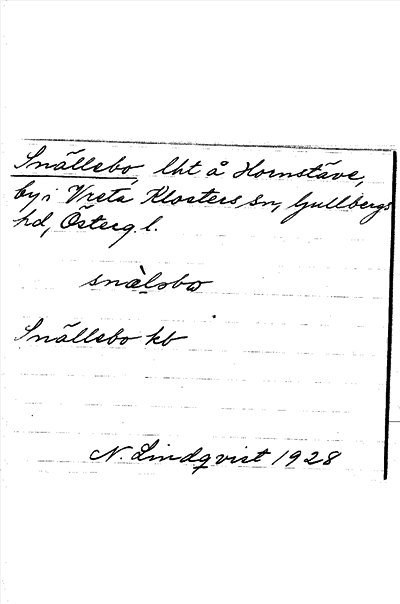 Snällebo, lht å Hornstäve,
by i Vreta Klosters sn, Gullbergs
hd, Österg. l.
snàlsbω
Snällebo kb
N. Lindqvist 1928